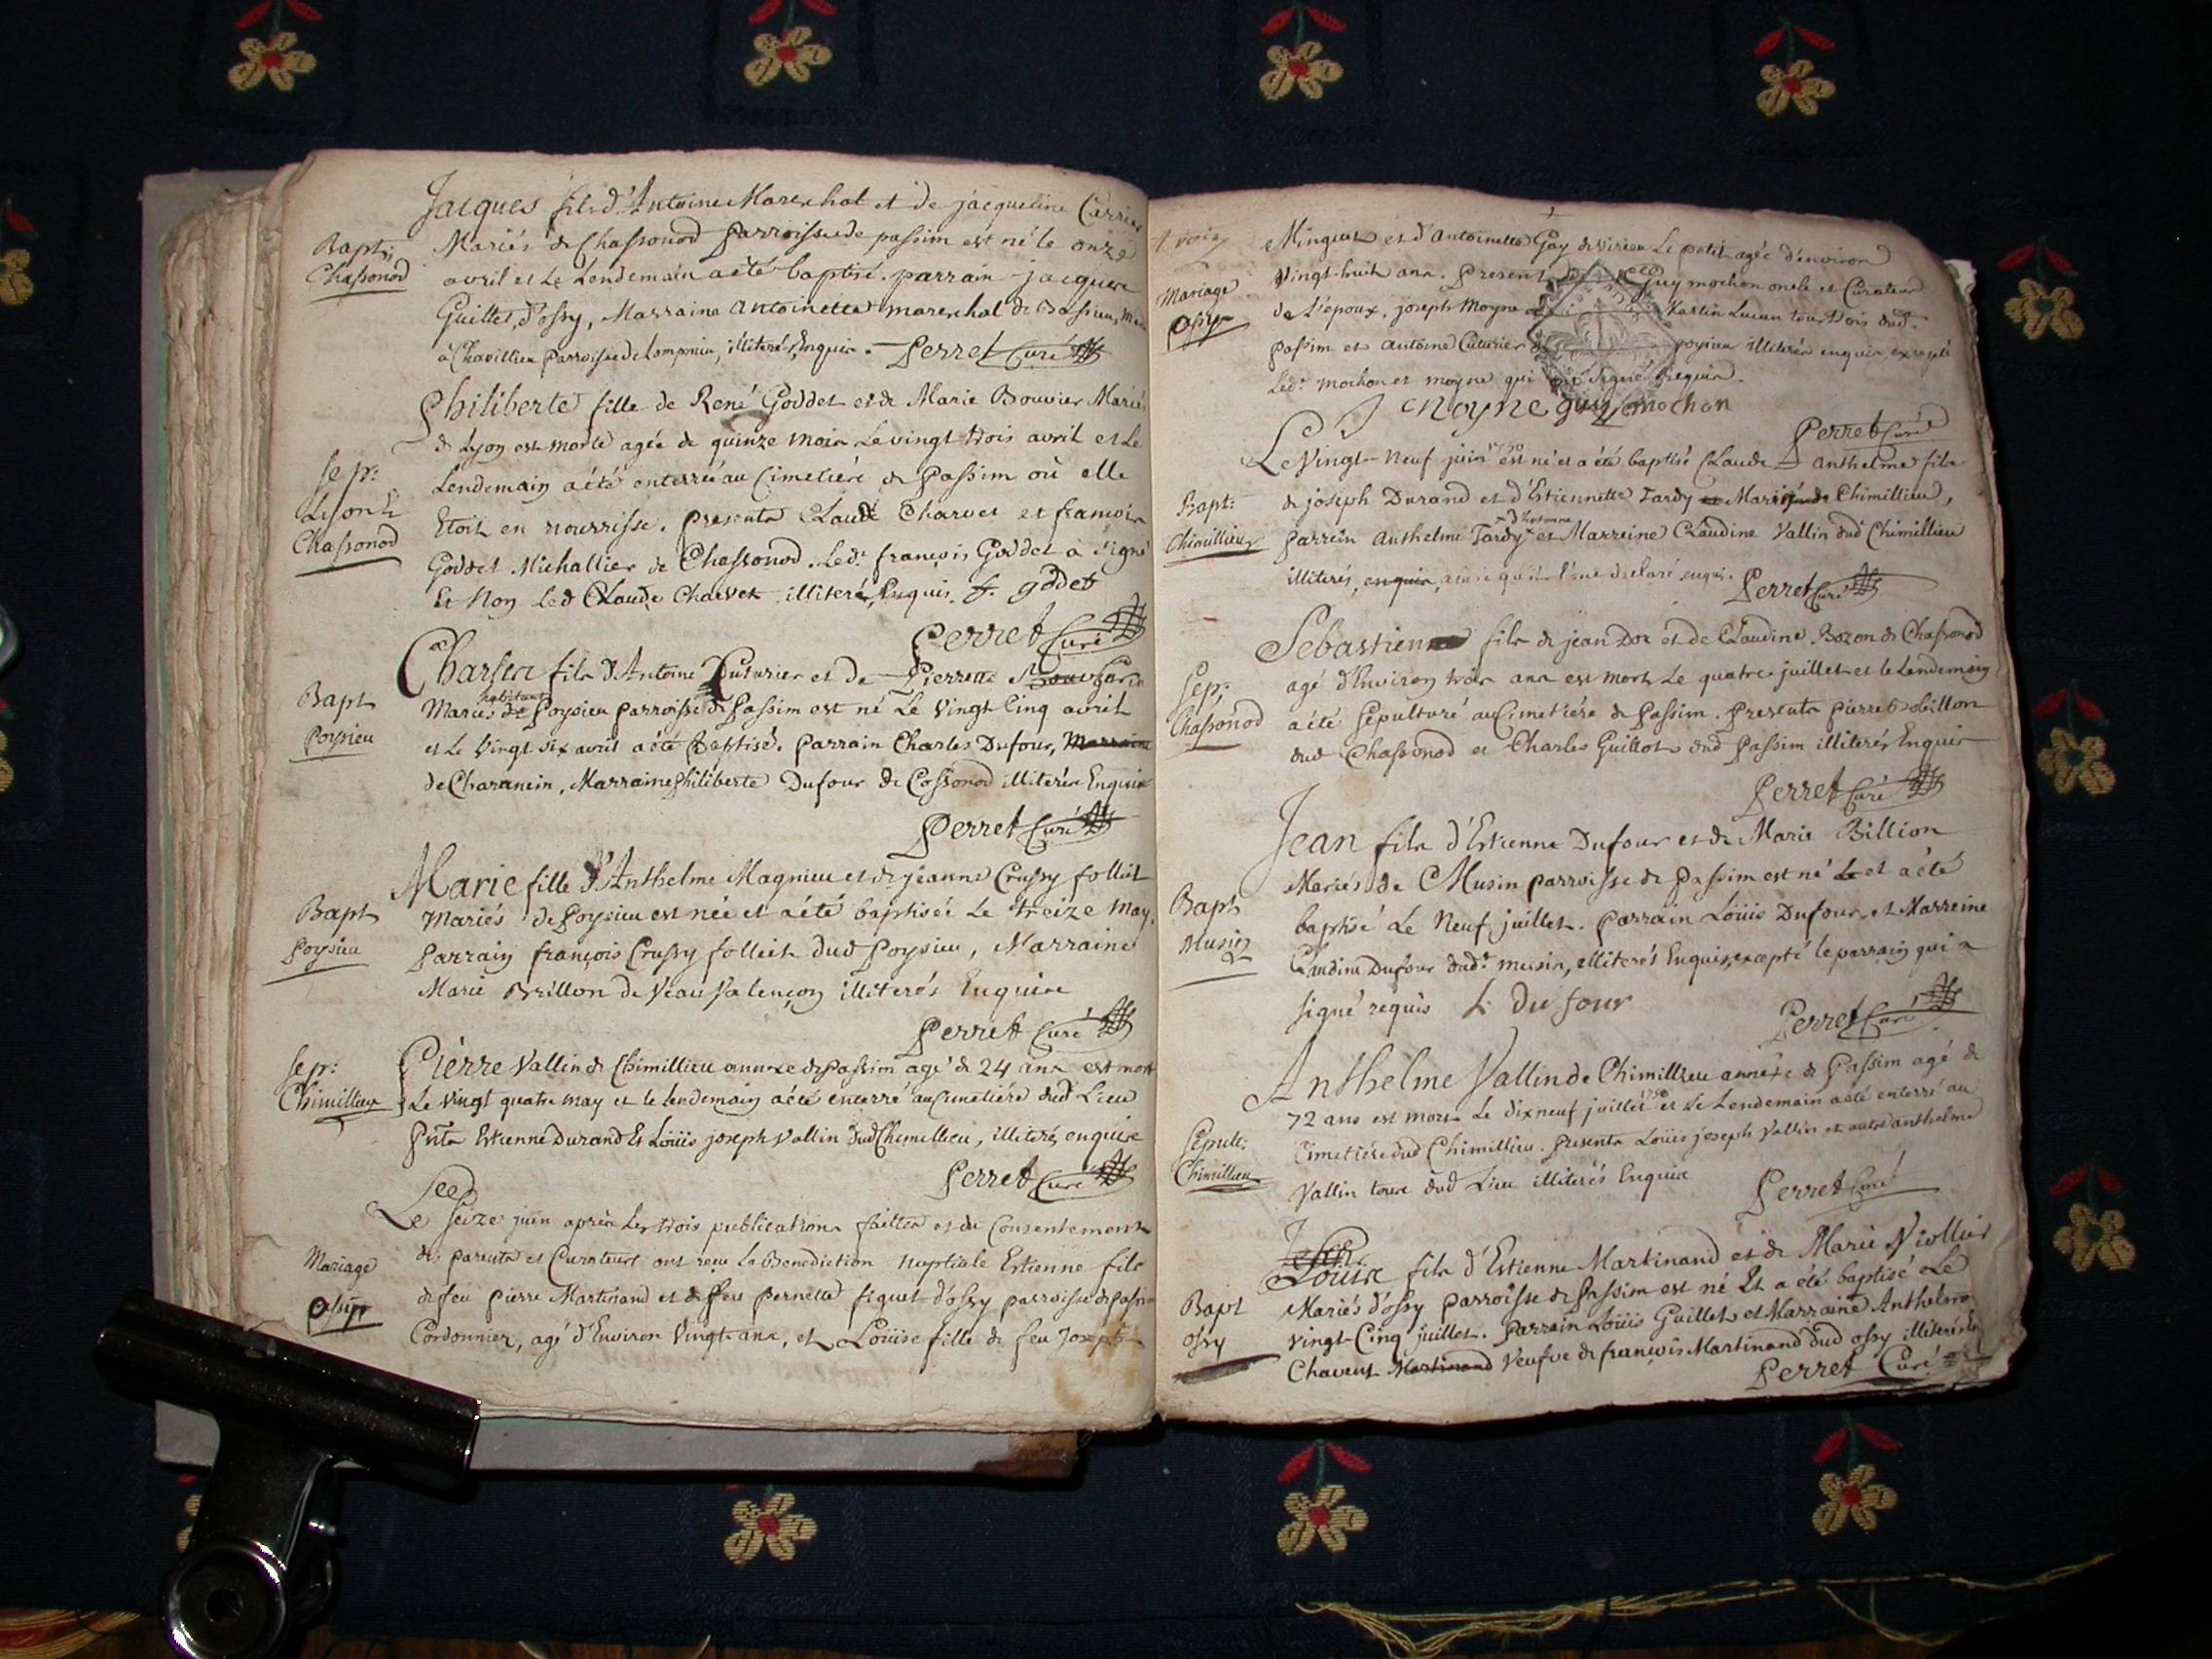 Jacques fils d'Antoine Mareschal et de jacqueline Carrier
Bapt:
Chassonod
Mariés de Chassonod parroisse de passim est né le onze
avril et Le Lendemain a été baptisé. parrain jacques
Guillet, d'ossy, Marraine antoinette mareschal de
à Chavillieu parroisse de Lompnieu, illiterés Enquis. Perret Curé
Philiberte fille de René Goddet et de Marie Bouvier Mariés
de Lyon est morte agée de quinze mois Le vingt trois avril et Le
Sep:
Lyon &
Chassonod
Lendemain a été enterrée au Cimetiére de Passim où elle
Etoit en nourrisse. presents Claude Charvet et francois
Goddet Michallier de Chassonod. Led. françois Goddet a signé
Et Non led Claude Charvet illiteré, Enquis. f. godet
Perret Curé
Charles fils d'Antoine Cuturier et de Pierrette
Bapt
Poysieu
Mariés habitants de Poysieu parroisse de Passim est né Le Vingt Cinq avril
et Le Vingt six avril a été Baptisé. Parrain Charles Dufour, Marraine
de Charancin, Marraine Philiberte Dufour de Cossonod illiterés Enquis
Perret Curé
Marie fille d'Anthelme Magnieu et de jeanne Crussy folliet
Bapt
Poysieu
Mariés de Poysieu est née et a été baptisée Le treize May.
Parrain françois Crussy folliet dud Poysieu, Marraine
Marie Brillon de Veau Valençon illiterés Enquis
Perret Curé
Sep:
Chimillieu
Pierre Vallin de Chimillieu annexe de Passim agé de 24 ans est mort
Le Vingt quatre may et le lendemain a été enterré au Cimetiére dud Lieu
Pnts Estienne Durand Et Loüis joseph Vallin dud Chimillieu, illiterés enquis
Perret Curé
Le Seize juin aprés Les trois publications faittes et du Consentement
Mariage
ossy
des parents et Curateurs ont reçu La Benediction Nuptiale Estienne fils
de feu Pierre Martinand et de feu Pernette figuet d'ossy parroisse de Passim
Cordonnier, agé d'Environ Vingt ans, et Loüise fille de feu Joseph
Mingeus et d'Antoinette Gay de virieu Le petit agée d'environ
Mariage
ossy
Vingt-huit ans. Present Guy mochon oncle et Curateur
de L'époux, joseph Moyne Lucan tous trois dud.
Passim et Antoine Cuturier de poysieu illiterés enquis, excepté
Led. mochon et moyne qui ont signé Requis.
J Moyne guy mochon
Perret Curé
Le Vingt-Neuf juin 1750 est né et a été baptisé Claude Anthelme fils
Bapt:
Chimillieu
de joseph Durand et d'Estiennette Tardy et Mariés de Chimillieu,
Parrein Anthelme Tardy et Marreine Claudine Vallin dud Chimillieu
illiterés, enquis, ainsi qu'ils l'ont declaré enquis. Perret Curé
Sebastien fils de jean Doz et de Claudine Bozon de Chassonod
Sep:
Chassonod
agé d'Environ trois ans est mort Le quatre juillet et le Lendemain
a été Sépulturé au Cimetiére de Passim. Presents Pierre Billon
dud Chassonod et Charles Guillot dud Passim illiterés Enquis
Perret Curé
Jean fils d'Estienne Dufour et de Marie Billion
Bapt
Musin
Mariés de Musin parroisse de Passim est né Le et a été
baptisé Le Neuf juillet. Parrain Loüis Dufour, et Marreine
Claudine Dufour dud. musin, illiterés Enquis, excepté le parrain qui a
signé requis L Dufour
Perret Curé
Anthelme Vallin de Chimillieu annexe de Passim agé de
72 ans est mort Le dixneuf juillet 1750 et Le Lendemain a été enterré au
Sépult:
Chimillieu
Cimetiére dud Chimillieu. Presents Loüis joseph Vallin et autre anthelme
Vallin tous dud Lieu illiterés Enquis
Perret Curé
Loüis fils d'Estienne Martinand et de Marie Viollier
Bapt
ossy
Mariés d'ossy parroisse de Passim est né Et a été baptisé Le
Vingt-Cinq juillet. Parrain Loüis Guillet et Marraine Anthelme
Chavent Martinand Veufve de françois Martinand dud ossy illiterés
Perret Curé